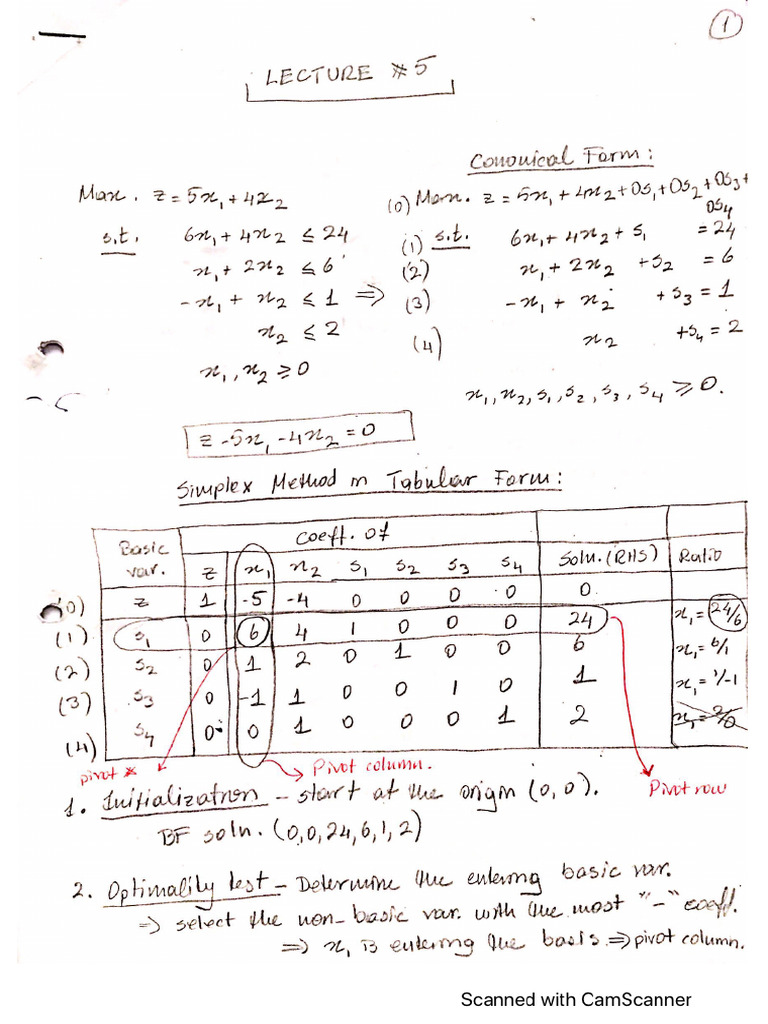 1
LECTURE #5
Canonical Form:
Max. z = 5x₁ + 4x₂
(0) Max. z = 5x₁ + 4x₂ + 0s₁ + 0s₂ + 0s₃ + 0s₄
s.t. 6x₁ + 4x₂ ≤ 24
(1) s.t. 6x₁ + 4x₂ + s₁ = 24
x₁ + 2x₂ ≤ 6
(2) x₁ + 2x₂ + s₂ = 6
-x₁ + x₂ ≤ 1 ⇒
(3) -x₁ + x₂ + s₃ = 1
x₂ ≤ 2
(4) x₂ + s₄ = 2
x₁, x₂ ≥ 0
x₁, x₂, s₁, s₂, s₃, s₄ ≥ 0.
z - 5x₁ - 4x₂ = 0
Simplex Method in Tabular Form:
Basic var. Coeff. of
z x₁ x₂ s₁ s₂ s₃ s₄ Soln. (RHS) Ratio
(0) z 1 -5 -4 0 0 0 0 0
(1) s₁ 0 6 4 1 0 0 0 24 x₁ = 24/6
(2) s₂ 0 1 2 0 1 0 0 6 x₁ = 6/1
(3) s₃ 0 -1 1 0 0 1 0 1 x₁ = 1/-1
(4) s₄ 0 0 1 0 0 0 1 2 x₁ = 2/0
pivot * Pivot column. Pivot row
1. Initialization - start at the origin (0,0).
BF soln. (0,0,24,6,1,2)
2. Optimality test - Determine the entering basic var.
⇒ select the non-basic var. with the most "-" coeff.
⇒ x₁ is entering the basis ⇒ pivot column.
Scanned with CamScanner